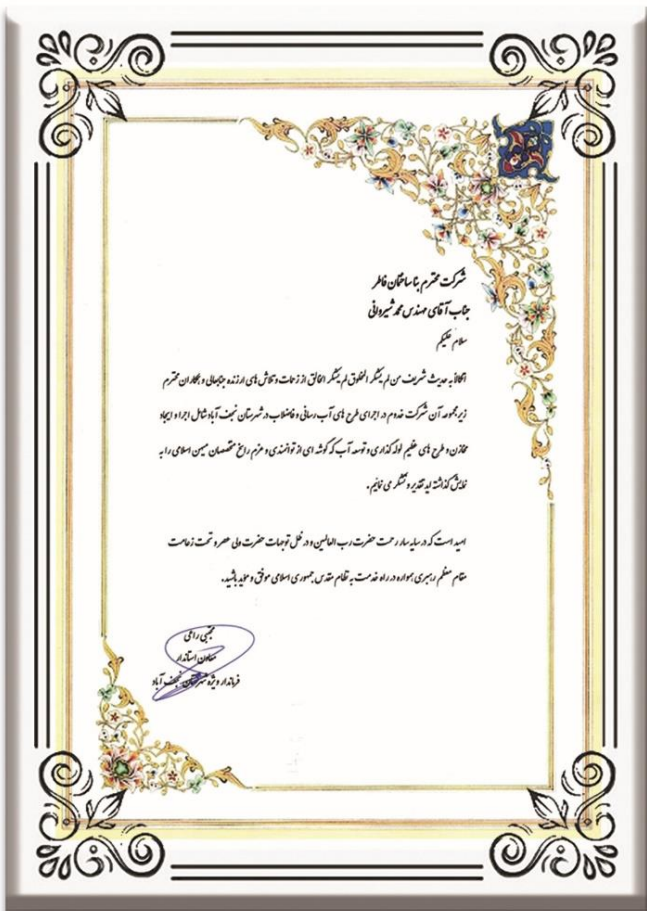 شرکت محترم بنا ساختمان فاطر
جناب آقای مهندس محمد شیروانی
سلام علیکم
اتکالاً به حدیث شریف من لم یشکر المخلوق لم یشکر الخالق از زحمات و تلاش های ارزنده جنابعالی و همکاران محترم
زیرمجموعه آن شرکت خدوم در اجرای طرح های آب رسانی و فاضلاب در شهرستان نجف آباد شامل اجرا و ایجاد
مخازن و طرح های عظیم لوله گذاری و توسعه آب که گوشه ای از توانمندی و عزم راسخ متخصصان میهن اسلامی را به
نمایش گذاشته اید تقدیر و تشکر می نمایم.
امید است که در سایه سار رحمت حضرت رب العالمین و در ظل توجهات حضرت ولی عصر و تحت زعامت
مقام معظم رهبری همواره در راه خدمت به نظام مقدس جمهوری اسلامی موفق و موید باشید.
مجتبی راعی
معاون استاندار
فرماندار ویژه شهرستان نجف آباد